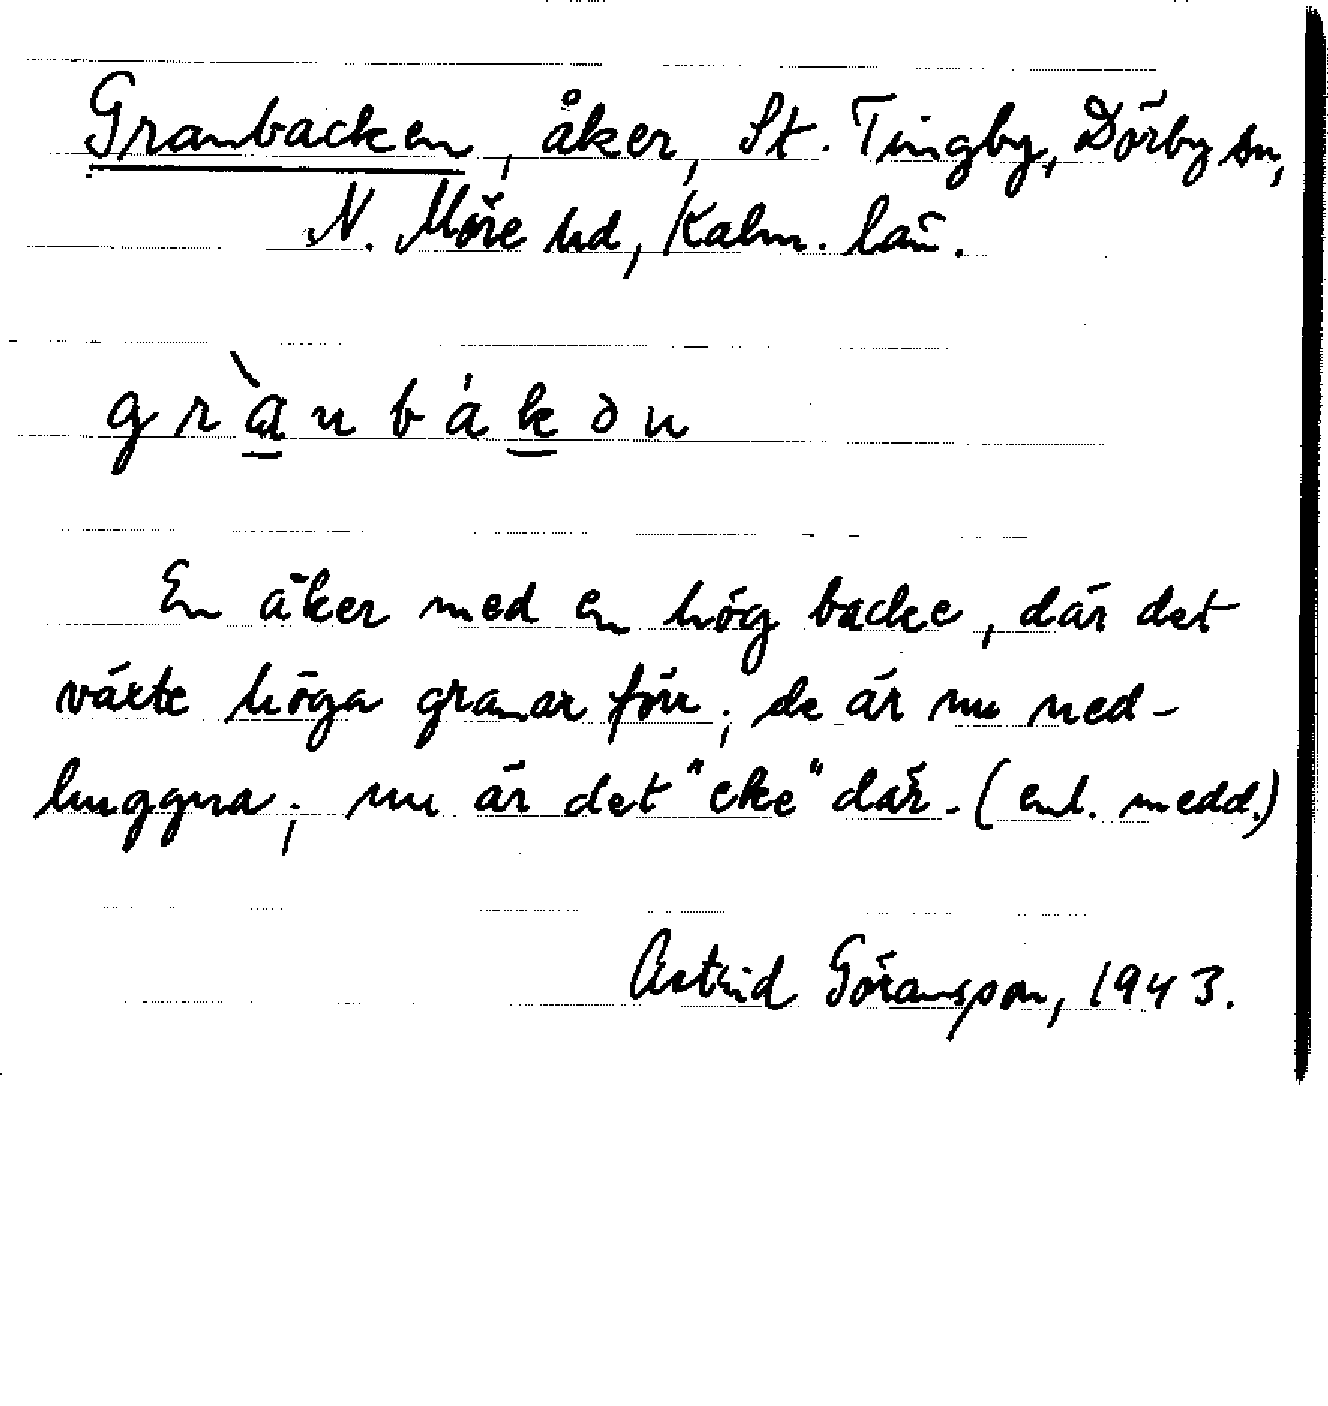 Granbacken, åker, St. Tingby, Dörby sn,
N. Möre hd, Kalm. län.
grànbákən
En åker med en hög backe, där det
växte höga granar förr; de är nu ned-
huggna; nu är det "eke" där. (enl. medd.)
Astrid Göransson, 1943.